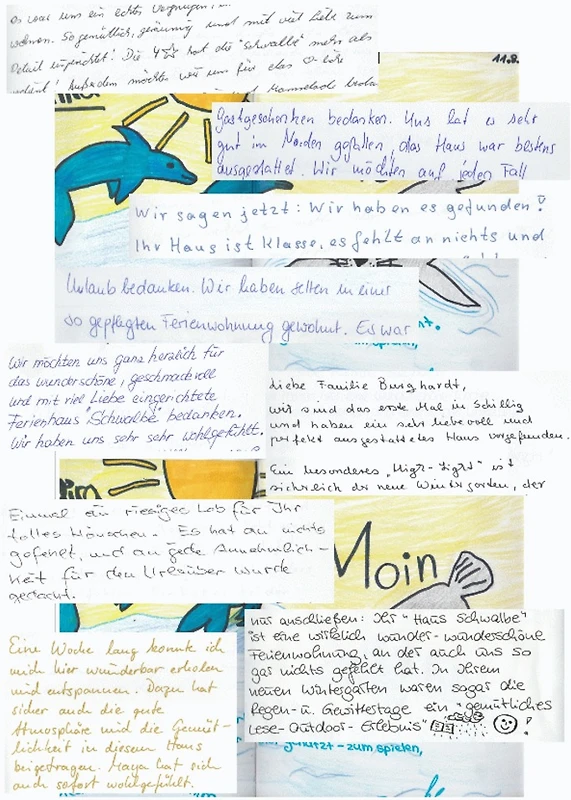 es war uns ein echtes Vergnügen,
wohnen. So gemütlich, geräumig und mit viel Liebe zum
Detail eingerichtet! Die 4☆ hat die "Schwalbe" mehr als
verdient! Außerdem möchten wir uns für das
und Marmelade
11.8.
Gastgeschenken bedanken. Uns hat es sehr
gut im Norden gefallen, das Haus war bestens
ausgestattet. Wir möchten auf jeden Fall
Wir sagen jetzt: Wir haben es gefunden!
Ihr Haus ist Klasse, es fehlt an nichts und
Urlaub bedanken. Wir haben selten in einer
so gepflegten Ferienwohnung gewohnt. Es war
Wir möchten uns ganz herzlich für
das wunderschöne, geschmackvoll
und mit viel Liebe eingerichtete
Ferienhaus "Schwalbe" bedanken.
Wir haben uns sehr sehr wohlgefühlt.
Liebe Familie Burghardt,
wir sind das erste Mal in Schillig
und haben ein sehr liebevoll und
perfekt ausgestattetes Haus vorgefunden.
Ein besonderes "High-Light" ist
sicherlich der neue Wintergarten, der
Einmal ein riesiges Lob für Ihr
tolles Häuschen. Es hat an nichts
gefehlt, und an jede Annehmlich-
keit für den Urlauber wurde
gedacht.
Moin
nur anschließen: Ihr "Haus Schwalbe"
ist eine wirklich wunder-wunderschöne
Ferienwohnung, an der auch uns so
gar nichts gefehlt hat. In Ihrem
neuen Wintergarten waren sogar die
Regen- u. Gewittertage ein "gemütliches
Lese-Outdoor-Erlebnis"
Eine Woche lang konnte ich
mich hier wunderbar erholen
und entspannen. Dazu hat
sicher auch die gute
Atmosphäre und die Gemüt-
lichkeit in diesem Haus
beigetragen. Maya hat sich
auch sofort wohlgefühlt.
- zum spielen,